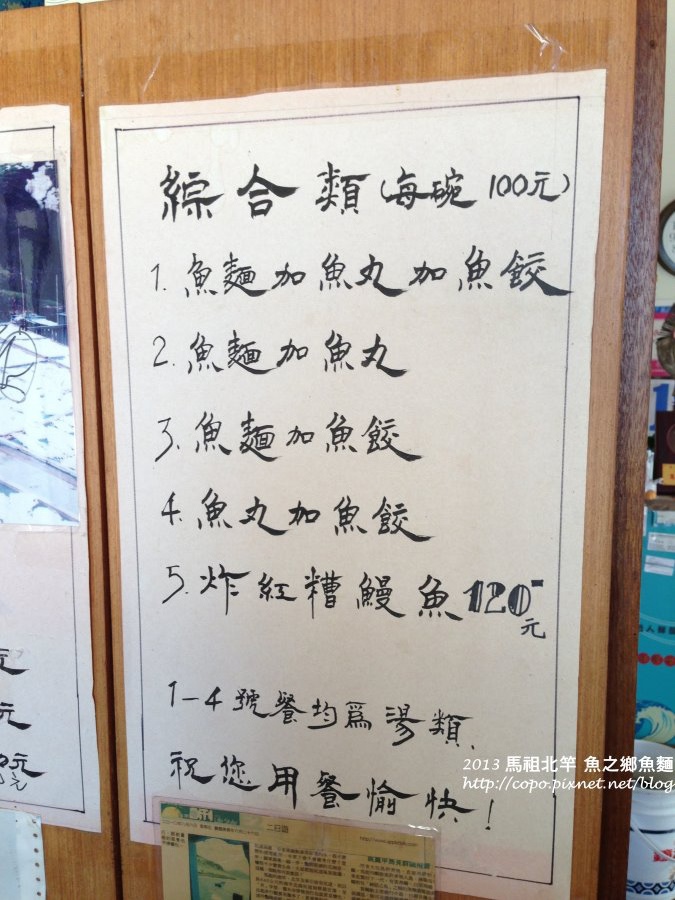 綜合類(每碗 100元)
1. 魚麵加魚丸加魚餃
2. 魚麵加魚丸
3. 魚麵加魚餃
4. 魚丸加魚餃
5. 炸紅糟鰻魚120元
1-4號餐均爲湯類.
祝您用餐愉快!
元
元
元
二日遊
2013 馬祖北竿 魚之鄉魚麵
http://copo.pixnet.net/blog